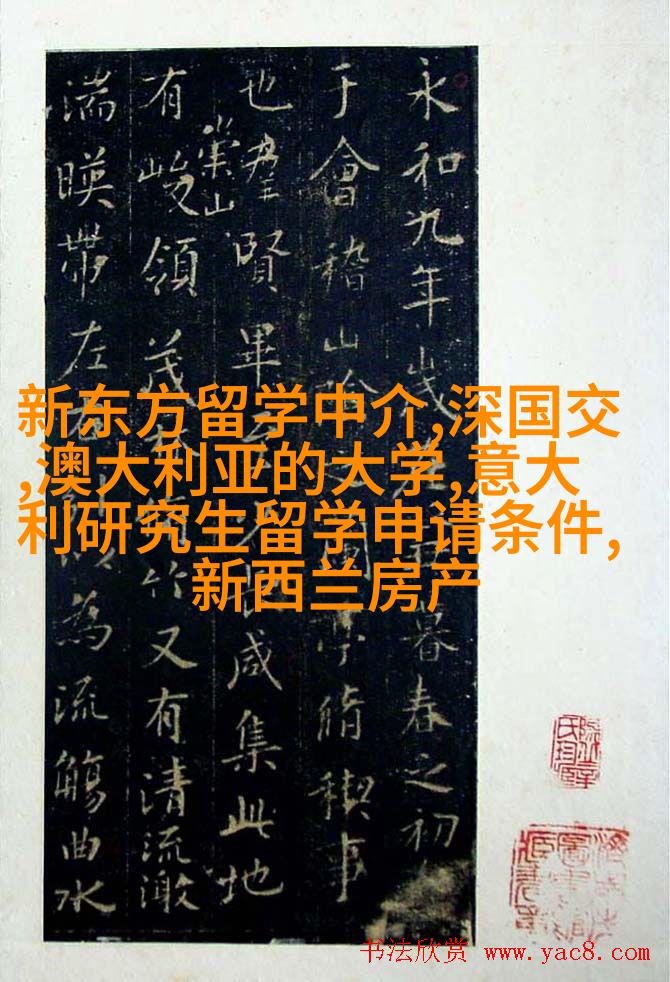 永和九年歲在丑暮春之初
于會稽山陰蘭亭脩稧事
也羣賢畢咸集此地
有崇山峻領茂竹又有清流激
湍暎帶左右為流觴曲水
新东方留学中介,深国交
,澳大利亚的大学,意大
利研究生留学申请条件,
新西兰房产
书法欣赏 www.yac8.com